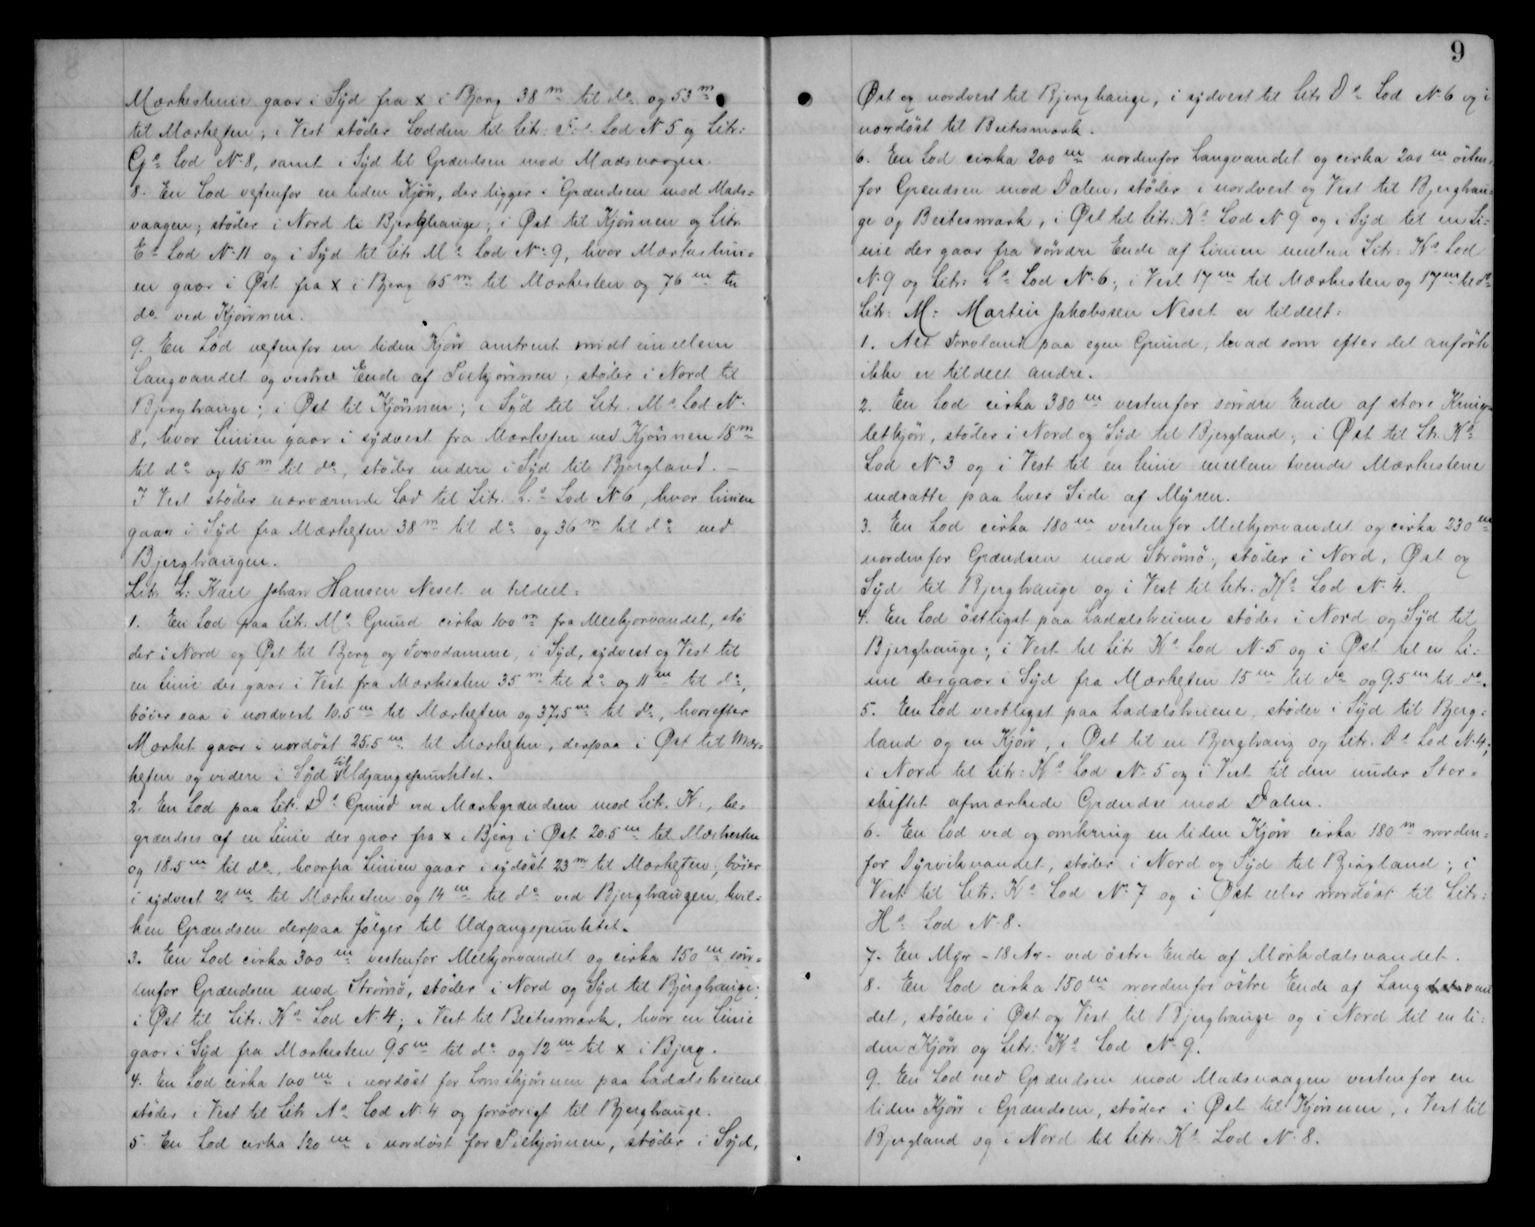 Mærkeslinie gaar i Syd fra x i Bjerg 38 m til do og 53 m
til Mærkesten; i Vest støder Lodden til Litr. Fa Lod No 5 og Litr:
Ga Lod No 8, samt i Syd til Grændsen mod Madsvaagen.
8. En Lod vestenfor en liden Kjørn, der ligger i Grændsen mod Mads-
vaagen; støder i Nord til Bjerghauge; i Øst til Kjørnnen og Litr.
Ea Lod No 11 og i Syd til Litr. Ma Lod No 9, hvor Mærkeslini-
en gaar i Øst fra x i Bjerg 65 m til Mærkesten og 76 m til
do ved Kjørnnen.
9. En Lod vestenfor en liden Kjørn omtrent midt imellem
Langvandet og vestre Ende af Piekjørnnen; støder i Nord til
Bjerghauge; i Øst til Kjørnnen; i Syd til Litr. Ma Lod No
8, hvor Linien gaar i sydvest fra Mærkesten ved Kjørnnen 18 m
til do og 15 m til do, støder videre i Syd til Bjergland. —
I Vest støder nærværende Lod til Litr. La Lod No 6, hvor Linien
gaar i Syd fra Mærkesten 38 m til do og 36 m til do ved
Bjerghaugen.
Litr. L: Karl Johan Hansen Neset er tildelt:
1. En Lod paa Litr. Ma Grund cirka 100 m fra Melkjorvandet, stø
der i Nord og Øst til Bjerg og Torvdamme, i Syd, sydvest og Vest til
en Linie der gaar i Vest fra Mærkesten 35 m til do og 11 m til do,
bøier saa i nordvest 10.5 m til Mærkesten og 37.5 m til do, hvorefter
Mærket gaar i nordøst 25.5 m til Mærkesten, derpaa i Øst til Mær-
kesten og videre i Syd til Udgangspunktet.
2. En Lod paa Litr. Da Grund ved Mærkgrændsen mod Litr. K:, be-
grændses af en Linie der gaar fra x i Bjerg i Øst 20.5 m til Mærkesten
og 18.5 m til do, hvorfra Linien gaar i sydøst 23 m til Mærkesten; bøier
i sydvest 21 m til Mærkesten og 14 m til do ved Bjerghaugen, hvil-
ken Grændsen derpaa følger til Udgangspunktet.
3. En Lod cirka 300 m vestenfor Melkjorvandet og cirka 150 m søn-
denfor Grændsen mod Strømø, støder i Nord og Syd til Bjerghauge;
i Øst til Litr. Ka Lod No 4; i Vest til Beitesmark, hvor en Linie
gaar i Syd fra Mærkesten 9.5 m til do og 12 m til x i Bjerg.
4. En Lod cirka 100 m i nordøst for Lomskjørnnen paa Ladalsheiene
støder i Vest til Litr. Na Lod No 4 og forøvrigt til Bjerghauge.
5. En Lod cirka 120 m i nordøst for Piekjørnnen, støder i Syd,
9
Øst og nordvest til Bjerghauge, i sydvest til Litr. Da Lod No 6 og i
nordøst til Beitesmark.
6. En Lod cirka 200 m nordenfor Langvandet og cirka 200 m østen-
for Grændsen mod Dalen, støder i nordvest og Vest til Bjerghau-
ge og Beitesmark, i Øst til Litr: Ka Lod No 9 og i Syd til en Li-
nie der gaar fra søndre Ende af Linien mellem Litr: Ka Lod
No 9 og Litr: La Lod No 6; i Vest 17 m til Mærkesten og 17 m til do
Litr: M: Martin Jakobssen Neset er tildelt:
1. Alt Torvland paa egen Grund, hvad som efter det anførte
ikke er tildelt andre.
2. En Lod cirka 380 m vestenfor søndre Ende af store Kringe-
letkjørn, støder i Nord og Syd til Bjergland; i Øst til Litr. Ka
Lod No 3 og i Vest til en Linie mellem tvende Mærkestene
nedsatte paa hver Side af Myren.
3. En Lod cirka 180 m vestenfor Melkjorvandet og cirka 230 m
nordenfor Grændsen mod Strømø; støder i Nord, Øst og
Syd til Bjerghauge og i Vest til Litr. Ka Lod No 4.
4. En Lod østligst paa Ladalsheiene støder i Nord og Syd til
Bjerghauge; i Vest til Litr Ka Lod No 5 og i Øst til en Li-
nie der gaar i Syd fra Mærkesten 15 m til do og 9.5 m til do.
5. En Lod vestligst paa Ladalsheiene, støder i Syd til Bjerg-
land og en Kjørn, i Øst til en Bjerghaug og Litr. Da Lod No 4;
i Nord til Litr: Ka Lod No 5 og i Vest til den under Stor-
skiftet afmærkede Grændse mod Dalen.
6. En Lod ved og omkring en liden Kjørn cirka 180 m norden-
for Dyrvikvandet, støder i Nord og Syd til Bergland; i
Vest til Litr. Ka Lod No 7 og i Øst eller nordøst til Litr:
Ha Lod No 8.
7. En Myr - 18 Ar - ved østre Ende af Mørkdalsvandet.
8. En Lod cirka 150 m nordenfor østre Ende af Langvan
det, støder i Øst og Vest til Bjerghauge og i Nord til en li-
den Kjørn og Litr: Ka Lod No 9.
9. En Lod ved Grændsen mod Madsvaagen vestenfor en
liden Kjørn i Grændsen, støder i Øst til Kjørnnen, i Vest til
Bjergland og i Nord til Litr. Ka Lod No 8.